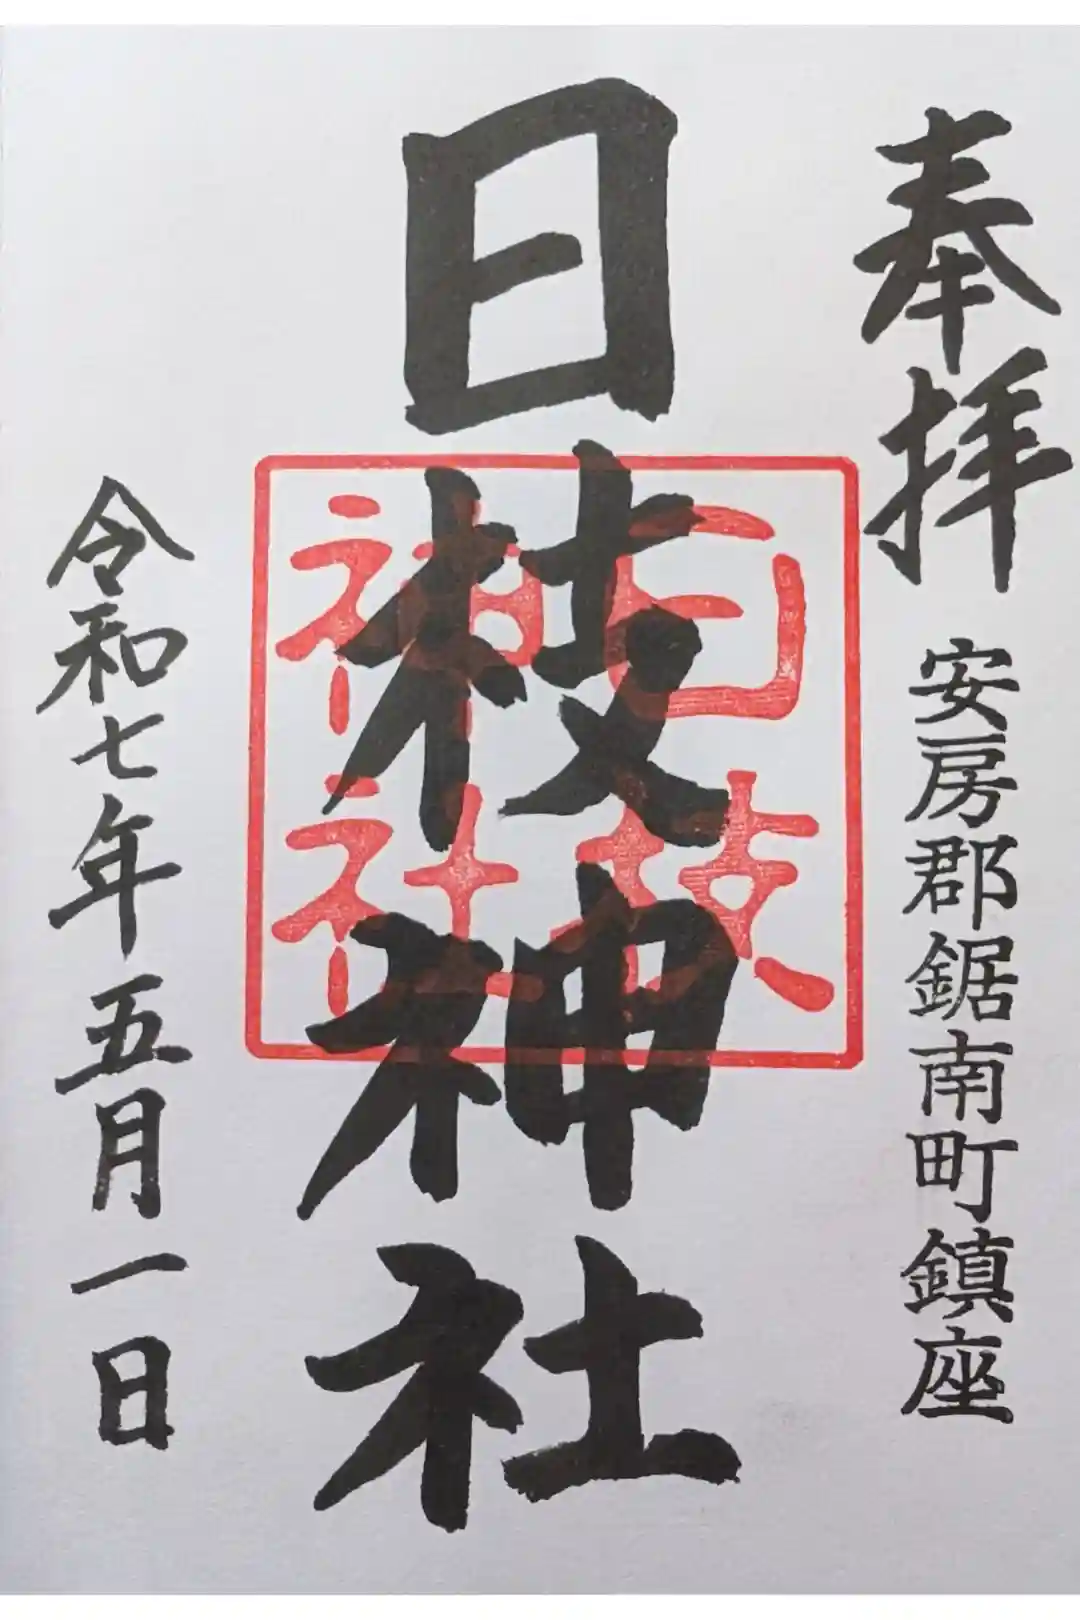 奉拝
安房郡鋸南町鎮座
日枝神社
日枝
神社
令和七年五月一日